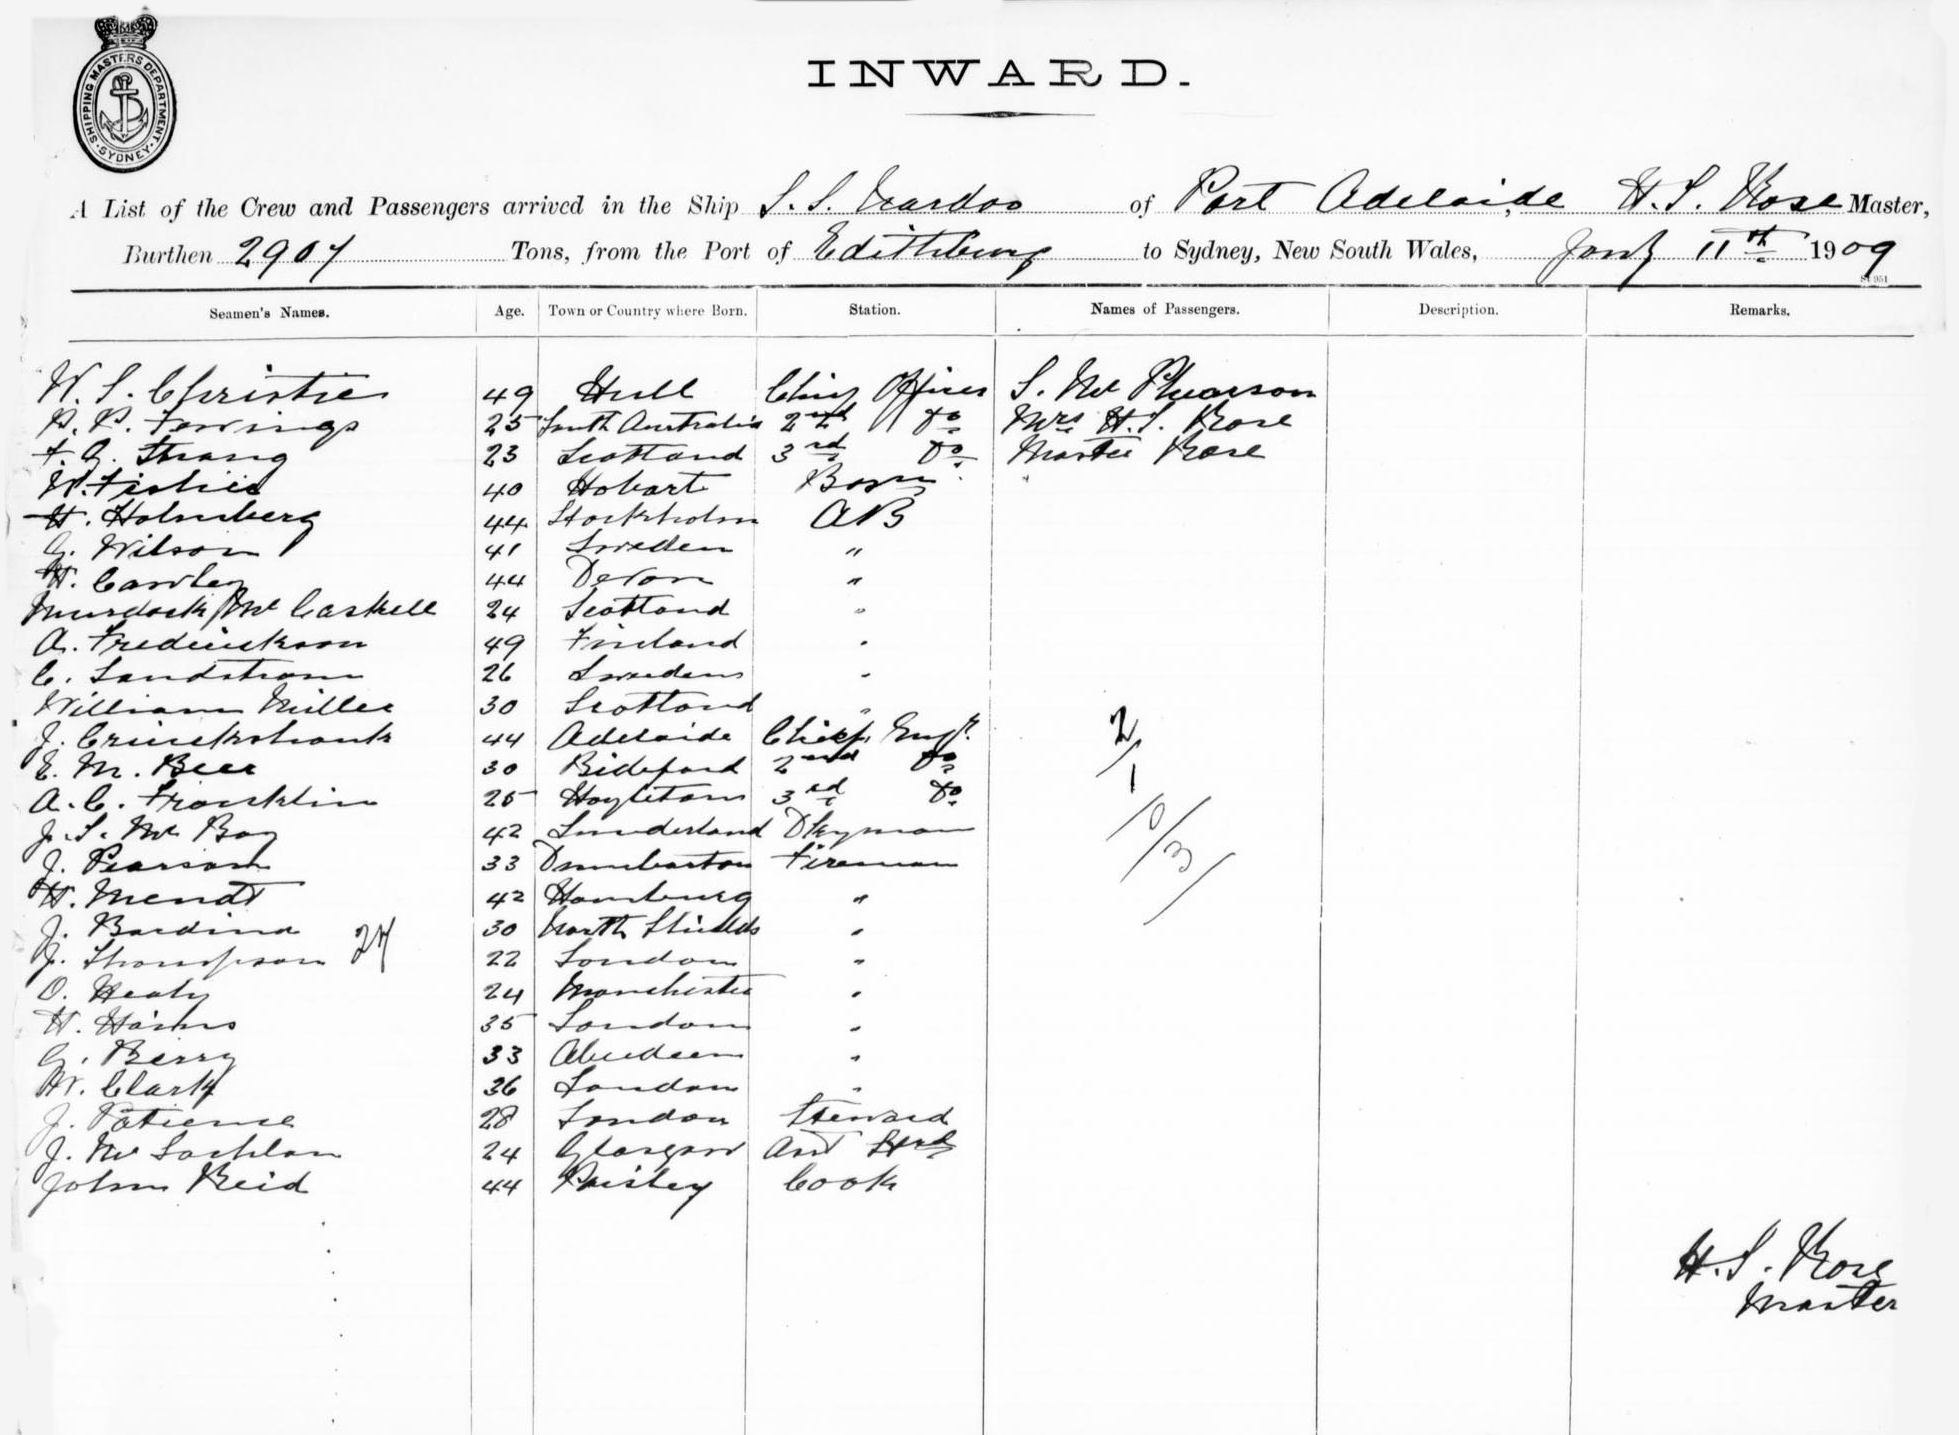 SHIPPING MASTERS DEPARTMENT
SYDNEY
INWARD.
A List of the Crew and Passengers arrived in the Ship S.S. Nardoo of Port Adelaide, H.S. Rose Master,
Burthen 2907 Tons, from the Port of Edithburg to Sydney, New South Wales, Jany 11th 1909
Seamen's Names. Age. Town or Country where Born. Station. Names of Passengers. Description. Remarks.
W. S. Christie 49 Hull Chief Officer S. Mc Phearson
P. P. 25 South Australia 2nd Do Mrs H.S. Rose
F. G. Strang 23 Scotland 3rd Do Master Rose
W. Fisher 40 Hobart Bosn
H. Holmberg 44 Stockholm AB
G. Wilson 41 Sweden "
W. Cawley 44 Devon "
Murdock Mc Caskell 24 Scotland "
A. Frederickson 49 Finland "
C. Sandstrom 26 Sweden "
William Miller 30 Scotland "
J. Cruickshank 44 Adelaide Chief Engr. 2
E. M. Beer 30 Bideford 2nd Do 1
A. C. Franklin 25 Hoyletown 3rd Do
J. S. Mc Boy 42 Sunderland Dkyman 0
J. Pearson 33 Dumbarton Fireman 3
H. Mendt 42 Hamburg "
J. Bardina 30 North Shields "
J. Thompson 27 22 London "
O. Healy 24 Manchester "
H. Hains 35 London "
G. Berry 33 Aberdeen "
W. Clark 36 London "
J. Patience 28 London Steward
J. Mc Lachlan 24 Glasgow Asst Strd
John Reid 44 Paisley Cook
H. S. Rose
Master